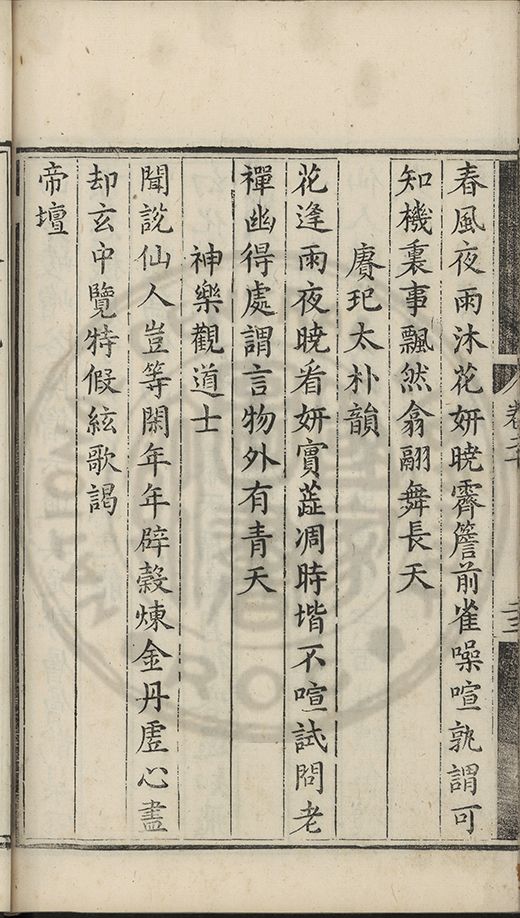 春風夜雨沐花妍曉霽簷前雀噪喧孰謂可
知機裏事飄然翕翮舞長天
賡玘太朴韻
花逢雨夜曉看妍實蕋凋時堦不喧試問老
禪幽得處謂言物外有青天
神樂觀道士
聞說仙人豈等閑年年辟糓煉金丹虛心盡
却玄中覽特假絃歌謁
帝壇